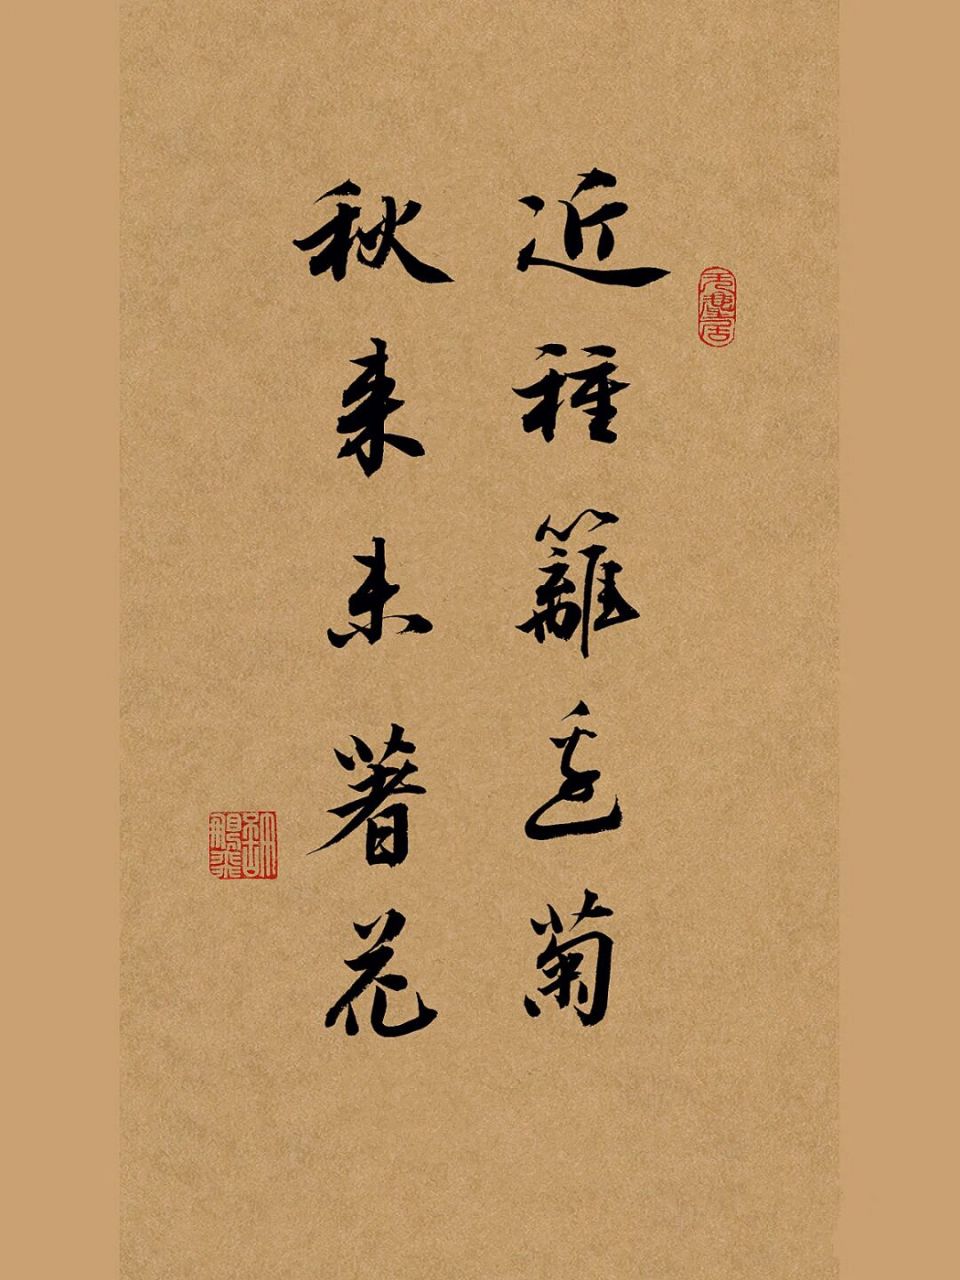 近種籬邊菊
秋来未著花